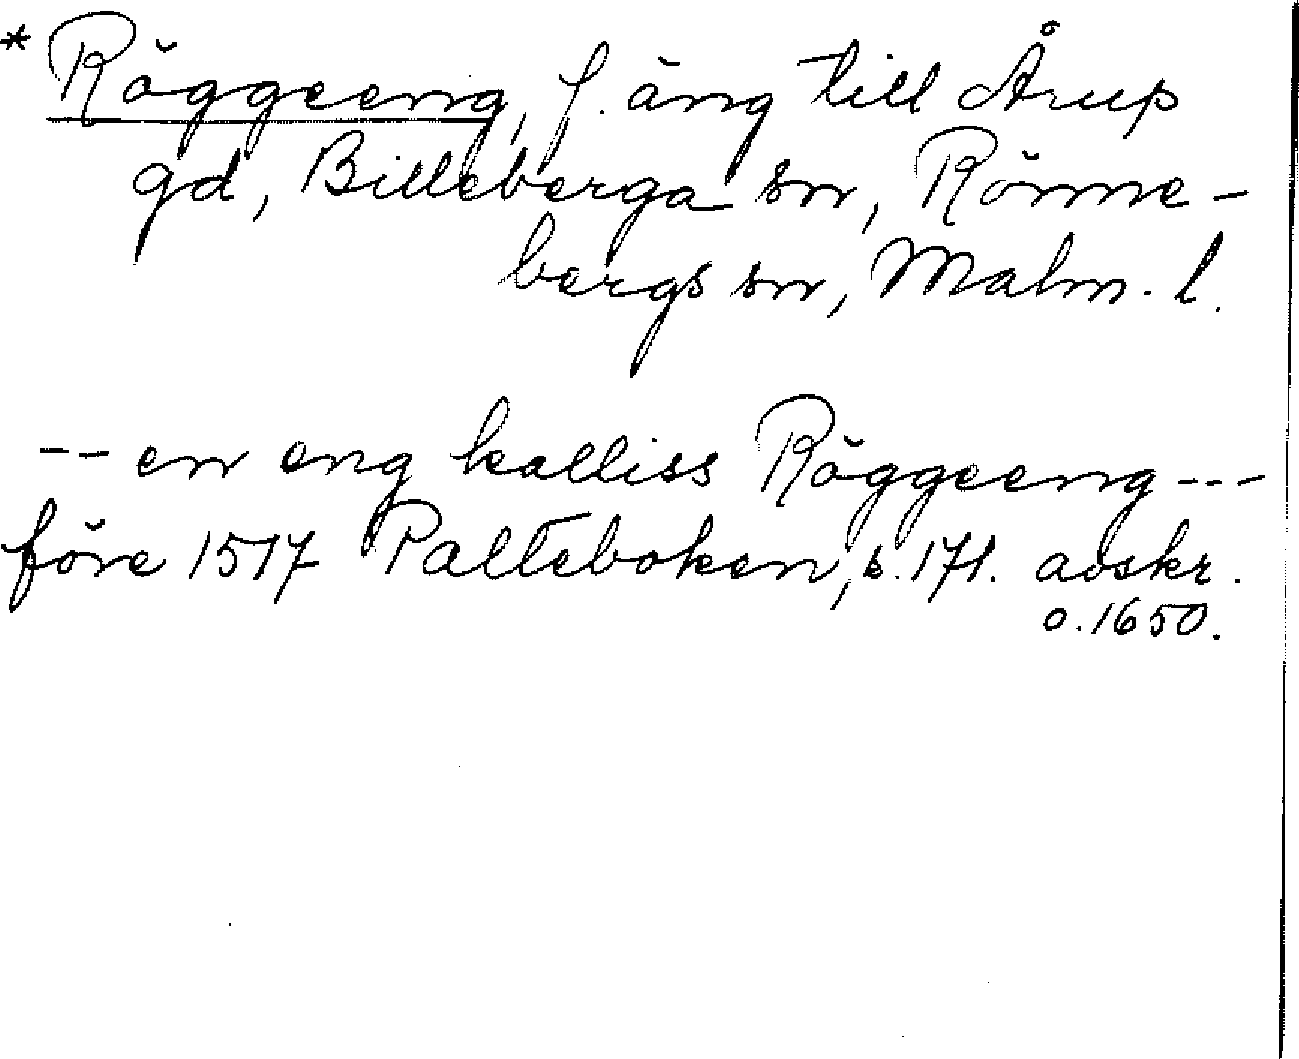 * Röggeeng, f. äng till Årup
gd, Billeberga sn, Rönne-
bergs sn, Malm. l.
-- en eng kalliss Röggeeng ---
före 1517 Palteboken, s. 171. avskr.
o. 1650.